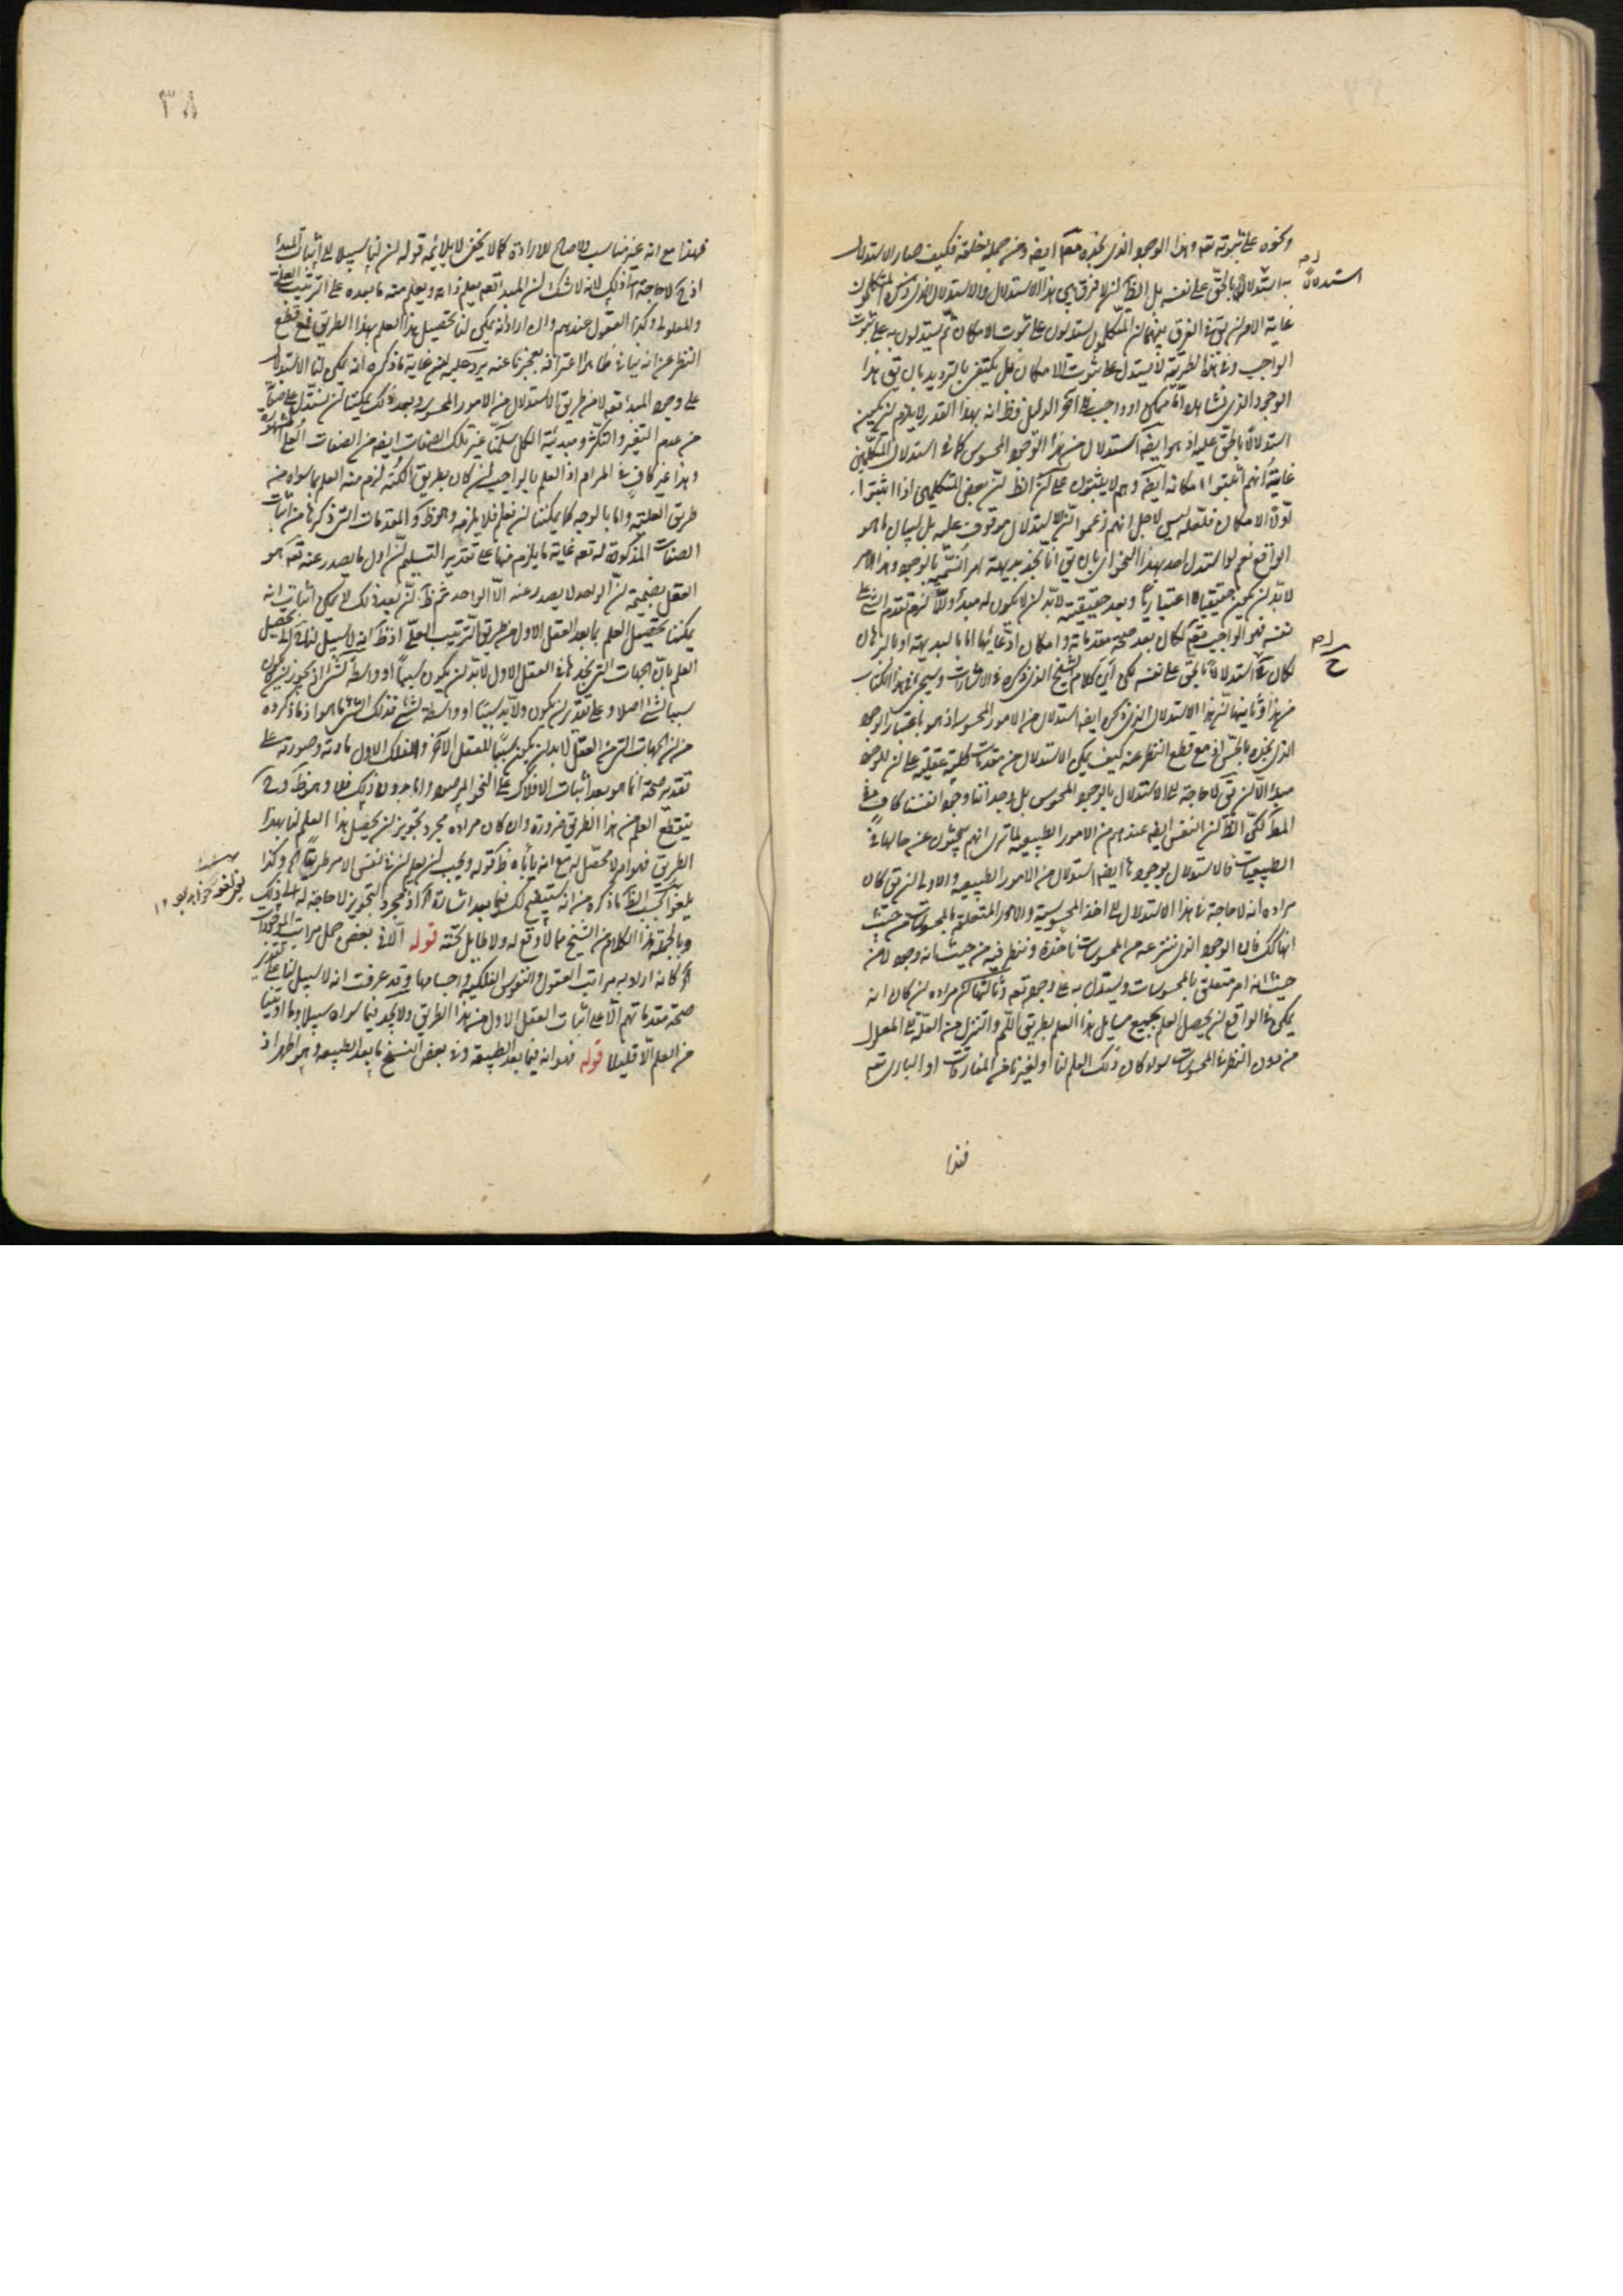 ونحوه على ثبوته تعه وهذا الوجود الذى نجده منه ايضه ومن جملة خلقه فكيف صار الاستدلال
به استدلالا بالحق على نفسه بل الظ ان لا فرق بين هذا الاستدلال والاستدلال الذى ذكره المتكلمون
استدلالا
غاية الامر ان يق فى الفرق بينهما ان المتكلمون يستدلون على ثبوت الامكان ثم يستدلون به على ثبوت
الواجب وفى هذا الطريقة لا يستدل على ثبوت الامكان بل يكتفى بالترديد بان يق هذا
الوجود الذى نشاهده اما ممكن او واجب الى آخر الدليل وظ انه بهذا القدر لا يلزم ان يكون
استدلالا بالحق عليه اذ هو ايضه استدلال من هذا الوجود المحسوس كما فى استدلال المتكلمين
غايته انهم اثبتوا امكانه ايضه وهم لا يثبتون على ان الظ ان بعض المتكلمين اذا اثبتوا
اولا الامكان فلعله ليس لاجل انهم زعموا ان الاستدلال موقوف عليه بل لبيان ما هو
الواقع نعم لو استدل احد بهذا النحو اى بان يق انا نجد بديهة امرا نسميه بالوجود وهذا الامر
لا بد ان يكون حقيقيا لا اعتباريا وبعد حقيقيته لا بد ان لا يكون له مبدأ والا لزم تقدم الشئ على
نفسه فهو الواجب تعه لكان بعد صحة مقدماته وامكان ادعائها اما بالبديهة او بالبرهان
لكان استدلالا بالحق على نفسه لكن اين كلام الشيخ الذى ذكره فى الاشارات وسيجئ فى هذا الكتاب
من هذا وثانيهما ان هذا الاستدلال الذى ذكره ايضه استدلال من الامور المحسوسة اذ هو باعتبار الوجود
الذى نجده بالحس اذ مع قطع النظر عنه كيف يمكن الاستدلال من مقدمات كلية عقلية على ان للوجود
مبدا الا ان يق لا حاجة الى الاستدلال بالوجود المحسوس بل وجداننا وجود انفسنا كاف فى
المط لكن الظ ان النفس ايضه عندهم من الامور الطبيعية لما ترى انهم يبحثون عن حالها فى
الطبيعيات فالاستدلال بوجودها ايضه استدلال من الامور الطبيعية والاولى ان يق كان
مراده انه لا حاجة فى هذا الاستدلال الى اخذ المحسوسية والامور المتعلقة بالمحسوسات من حيث
انها كك فان الوجود الذى ننتزعه من المحسوسات ناخذه وننظر فيه من حيث انه وجود لا من
حيث انه امر متعلق بالمحسوسات ونستدل به على وجوده تعه وثالثها ان مراده ان كان انه
يمكن فى الواقع ان يحصل العلم بجميع مسايل هذا العلم بطريق اللم والتنزل من العلة الى المعلول
من دون النظر فى المحسوسات سواء كان ذلك العلم لنا او لغيرنا من المفارقات او البارى تعه
فهذا
٣٨
فهذا مع انه غير مناسب ولا صالح للارادة كما لا يخفى لا يلائمه قوله ان لنا سبيلا الى اثبات المبدأ
اذ لا حاجة الى ذلك لانه لا شك ان المبدا تعه يعلم ذاته ويعلم منه ما بعده على الترتيب العلى
والمعلولى وكذا العقول عندهم وان اراد انه يمكن لنا تحصيل هذا العلم بهذا الطريق فمع قطع
النظر عن انه ينافى ظاهرا اعترافه بعجزنا عنه يرد عليه منع غاية ما ذكره انه يمكن لنا الاستدلال
على وجود المبدأ تعه لا من طريق الاستدلال من الامور المحسوسة وبعد ذلك يمكننا ان نستدل على صفاته
من عدم التغير والتكثر ومبدئية الكل سلمنا غير تلك الصفات ايضه من الصفات العلى المشهورة
وهذا غير كاف فى المرام اذ العلم بالواجب ان كان بطريق الكنه لزم منه العلم بما سواه من
طريق العلية واما بالوجه كما يمكننا ان نعلم فلا يلزمه وهو ظ والمقدمات التى ذكرها من اثبات
الصفات المذكورة له تعه غاية ما يلزم منها على تقدير التسليم ان اول ما يصدر عنه تعه هو
العقل بضميمة ان الواحد لا يصدر عنه الا الواحد ثم ظ ان بعد ذلك لا يمكن اثبات انه
يمكننا تحصيل العلم بما بعد العقل الاول من طريق الترتيب العلى اذ ظ انه لا سبيل لنا الى تحصيل
العلم بان الجهات التى نجدها فى العقل الاول لا بد ان يكون سببا او واسطة لشئ اذ يجوز ان لا يكون
سببا لشئ اصلا وعلى تقدير ان يكون ولا بد سببا او واسطة لشئ فذلك الشئ ما هو اذ ما ذكروه
من ان الجهات التى فى العقل لا بد ان يكون سببا للعقل الآخر والفلك الاول مادته وصورته على
تقدير صحته انما هو بعد اثبات الافلاك على النحو المرصود واما بدون ذلك فلا وهو ظ وح
ينقطع العلم من هذا الطريق ضرورة وان كان مراده مجرد تجويز ان يحصل هذا العلم لنا بهذا
الطريق فهو امر لا محصل له مع انه يأباه ظ قوله ويجب ان يعلم ان فى نفس الامر طريقا اه وكذا
يلغو بحسب الظ ما ذكره من انه سيتضح لك فيما بعد اشارة اه اذ مجرد التجويز لا حاجة له الى ذلك
وبالجملة هذا الكلام من الشيخ مما لا وقع له ولا طايل تحته قوله الا فى بعض جمل مراتب الموجودات
اه كانه اراد به مراتب العقول والنفوس الفلكية واجسامها وقد عرفت انه لا سبيل لنا على تقدير
صحة مقدماتهم الا على اثبات العقل الاول من هذا الطريق ولا نجد فيما سواه سبيلا وما اوتينا
من العلم الا قليلا قوله فهو انه فيما بعد الطبيعة وفى بعض النسخ ما بعد الطبيعة وهو اظهر اذ